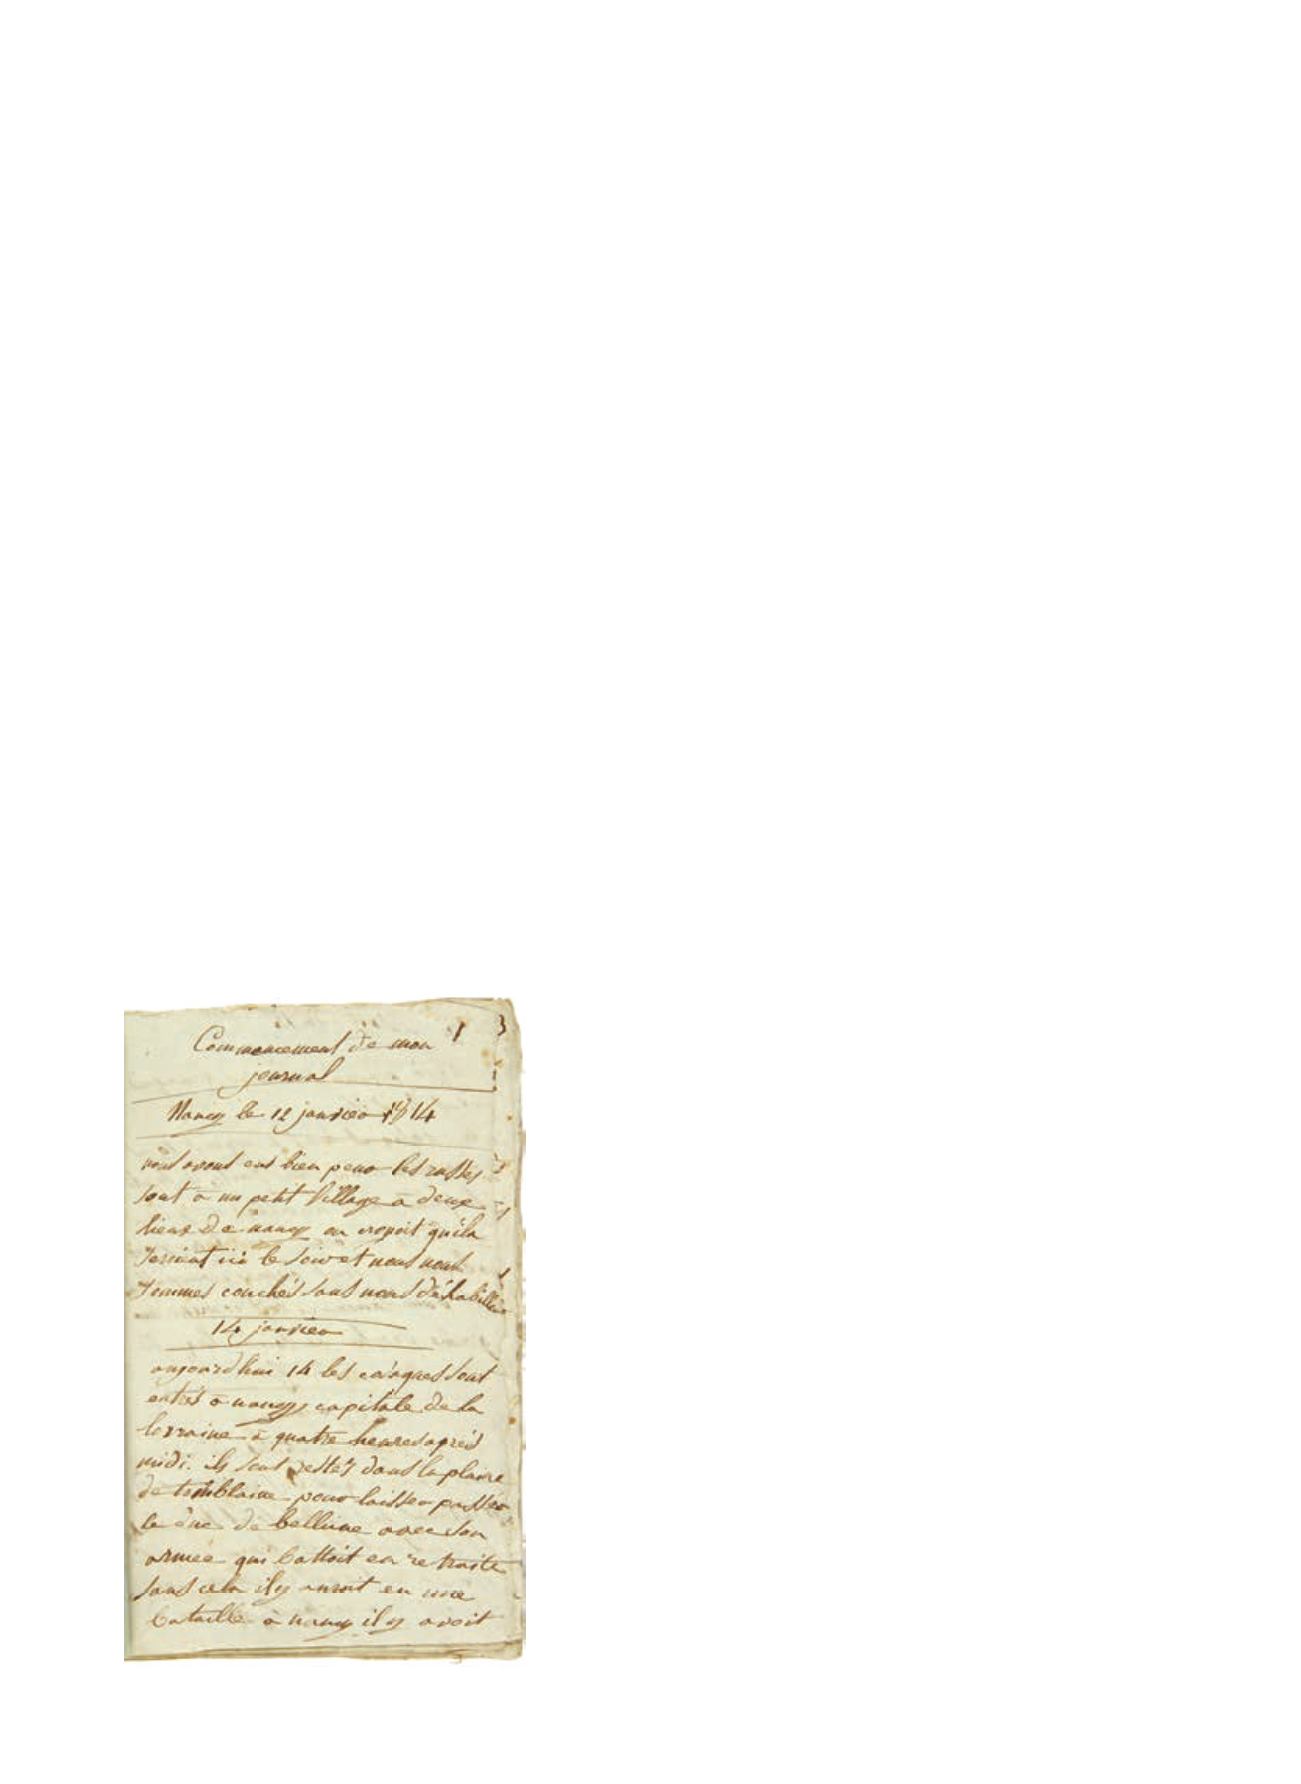 1 3
Commencement de mon
journal
Nancy le 12 janvier 1814
nous avons eus bien peur les russes
sont à un petit village à deux
lieus de nancy on croyoit qu'ils
seroient ici le soir et nous nous
sommes couchés sans nous déshabiller
14 janvier
aujourdhui 14 les cosaques sont
entrés a nancy capitale de la
lorraine à quatre heures après
midi. ils sont restés dans la plaine
de tomblaine pour laisser passer
le duc de bellune avec son
armée qui battoit en retraite
sans cela il y auroit eu une
bataille à nancy il y avoit